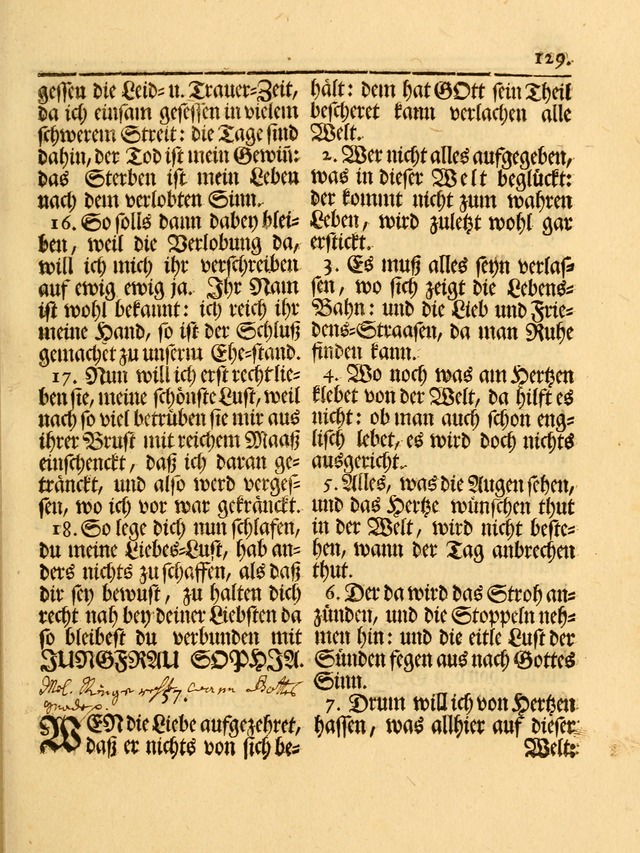 129.
gessen die Leid- u. Trauer-Zeit,
da ich einsam gesessen in vielem
schwerem Streit: die Tage sind
dahin, der Tod ist mein Gewiñ:
das Sterben ist mein Leben
nach dem verlobten Sinn.
16. So solls dann dabey blei-
ben, weil die Verlobung da,
will ich mich ihr verschreiben
auf ewig ewig ja. Ihr Nam
ist wohl bekannt: ich reich ihr
meine Hand, so ist der Schluß
gemachet zu unserm Ehe-stand.
17. Nun will ich erst recht lie-
ben sie, meine schönste Lust, weil
nach so viel betrüben sie mir aus
ihrer Brust mit reichem Maaß
einschenckt, daß ich daran ge-
tränckt, und also werd verges-
sen, wo ich vor war gekränckt.
18. So lege dich nun schlafen,
du meine Liebes-Lust, hab an-
ders nichts zu schaffen, als daß
dir sey bewust, zu halten dich
recht nah bey deiner Liebsten da
so bleibest du verbunden mit
JUNGFRAU SOPHJA.
Mel. Ringe recht, wann Gottes
gnade p.
WEN die Liebe aufgezehret,
daß er nichts von sich be-
hält: dem hat GOtt sein Theil
bescheret kann verlachen alle
Welt.
2. Wer nicht alles aufgegeben,
was in dieser Welt beglückt:
der kommt nicht zum wahren
Leben, wird zuletzt wohl gar
erstickt.
3. Es muß alles seyn verlas-
sen, wo sich zeigt die Lebens-
Bahn: und die Lieb und Frie-
dens-Straasen, da man Ruhe
finden kann.
4. Wo noch was am Hertzen
klebet von der Welt, da hilft es
nicht: ob man auch schon eng-
lisch lebet, es wird doch nichts
ausgericht.
5. Alles, was die Augen sehen,
und das Hertze wünschen thut
in der Welt, wird nicht beste-
hen, wann der Tag anbrechen
thut.
6. Der da wird das Stroh an-
zünden, und die Stoppeln neh-
men hin: und die eitle Lust der
Sünden fegen aus nach Gottes
Sinn.
7. Drum will ich von Hertzen
hassen, was allhier auf dieser
Welt: